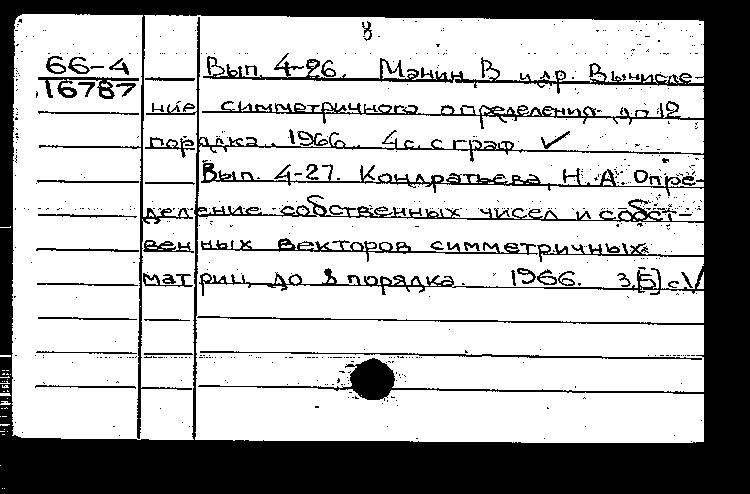 8
66-4
16787
Вып. 4-26. Манин, В и др. Вычисле-
ние симметричного определения до 12
порядка. 1966. 4 с. с граф. ✓
Вып. 4-27. Кондратьева, Н. А. Опре-
деление собственных чисел и собст-
венных векторов симметричных
матриц до 8 порядка. 1966. 3,[5] с. V